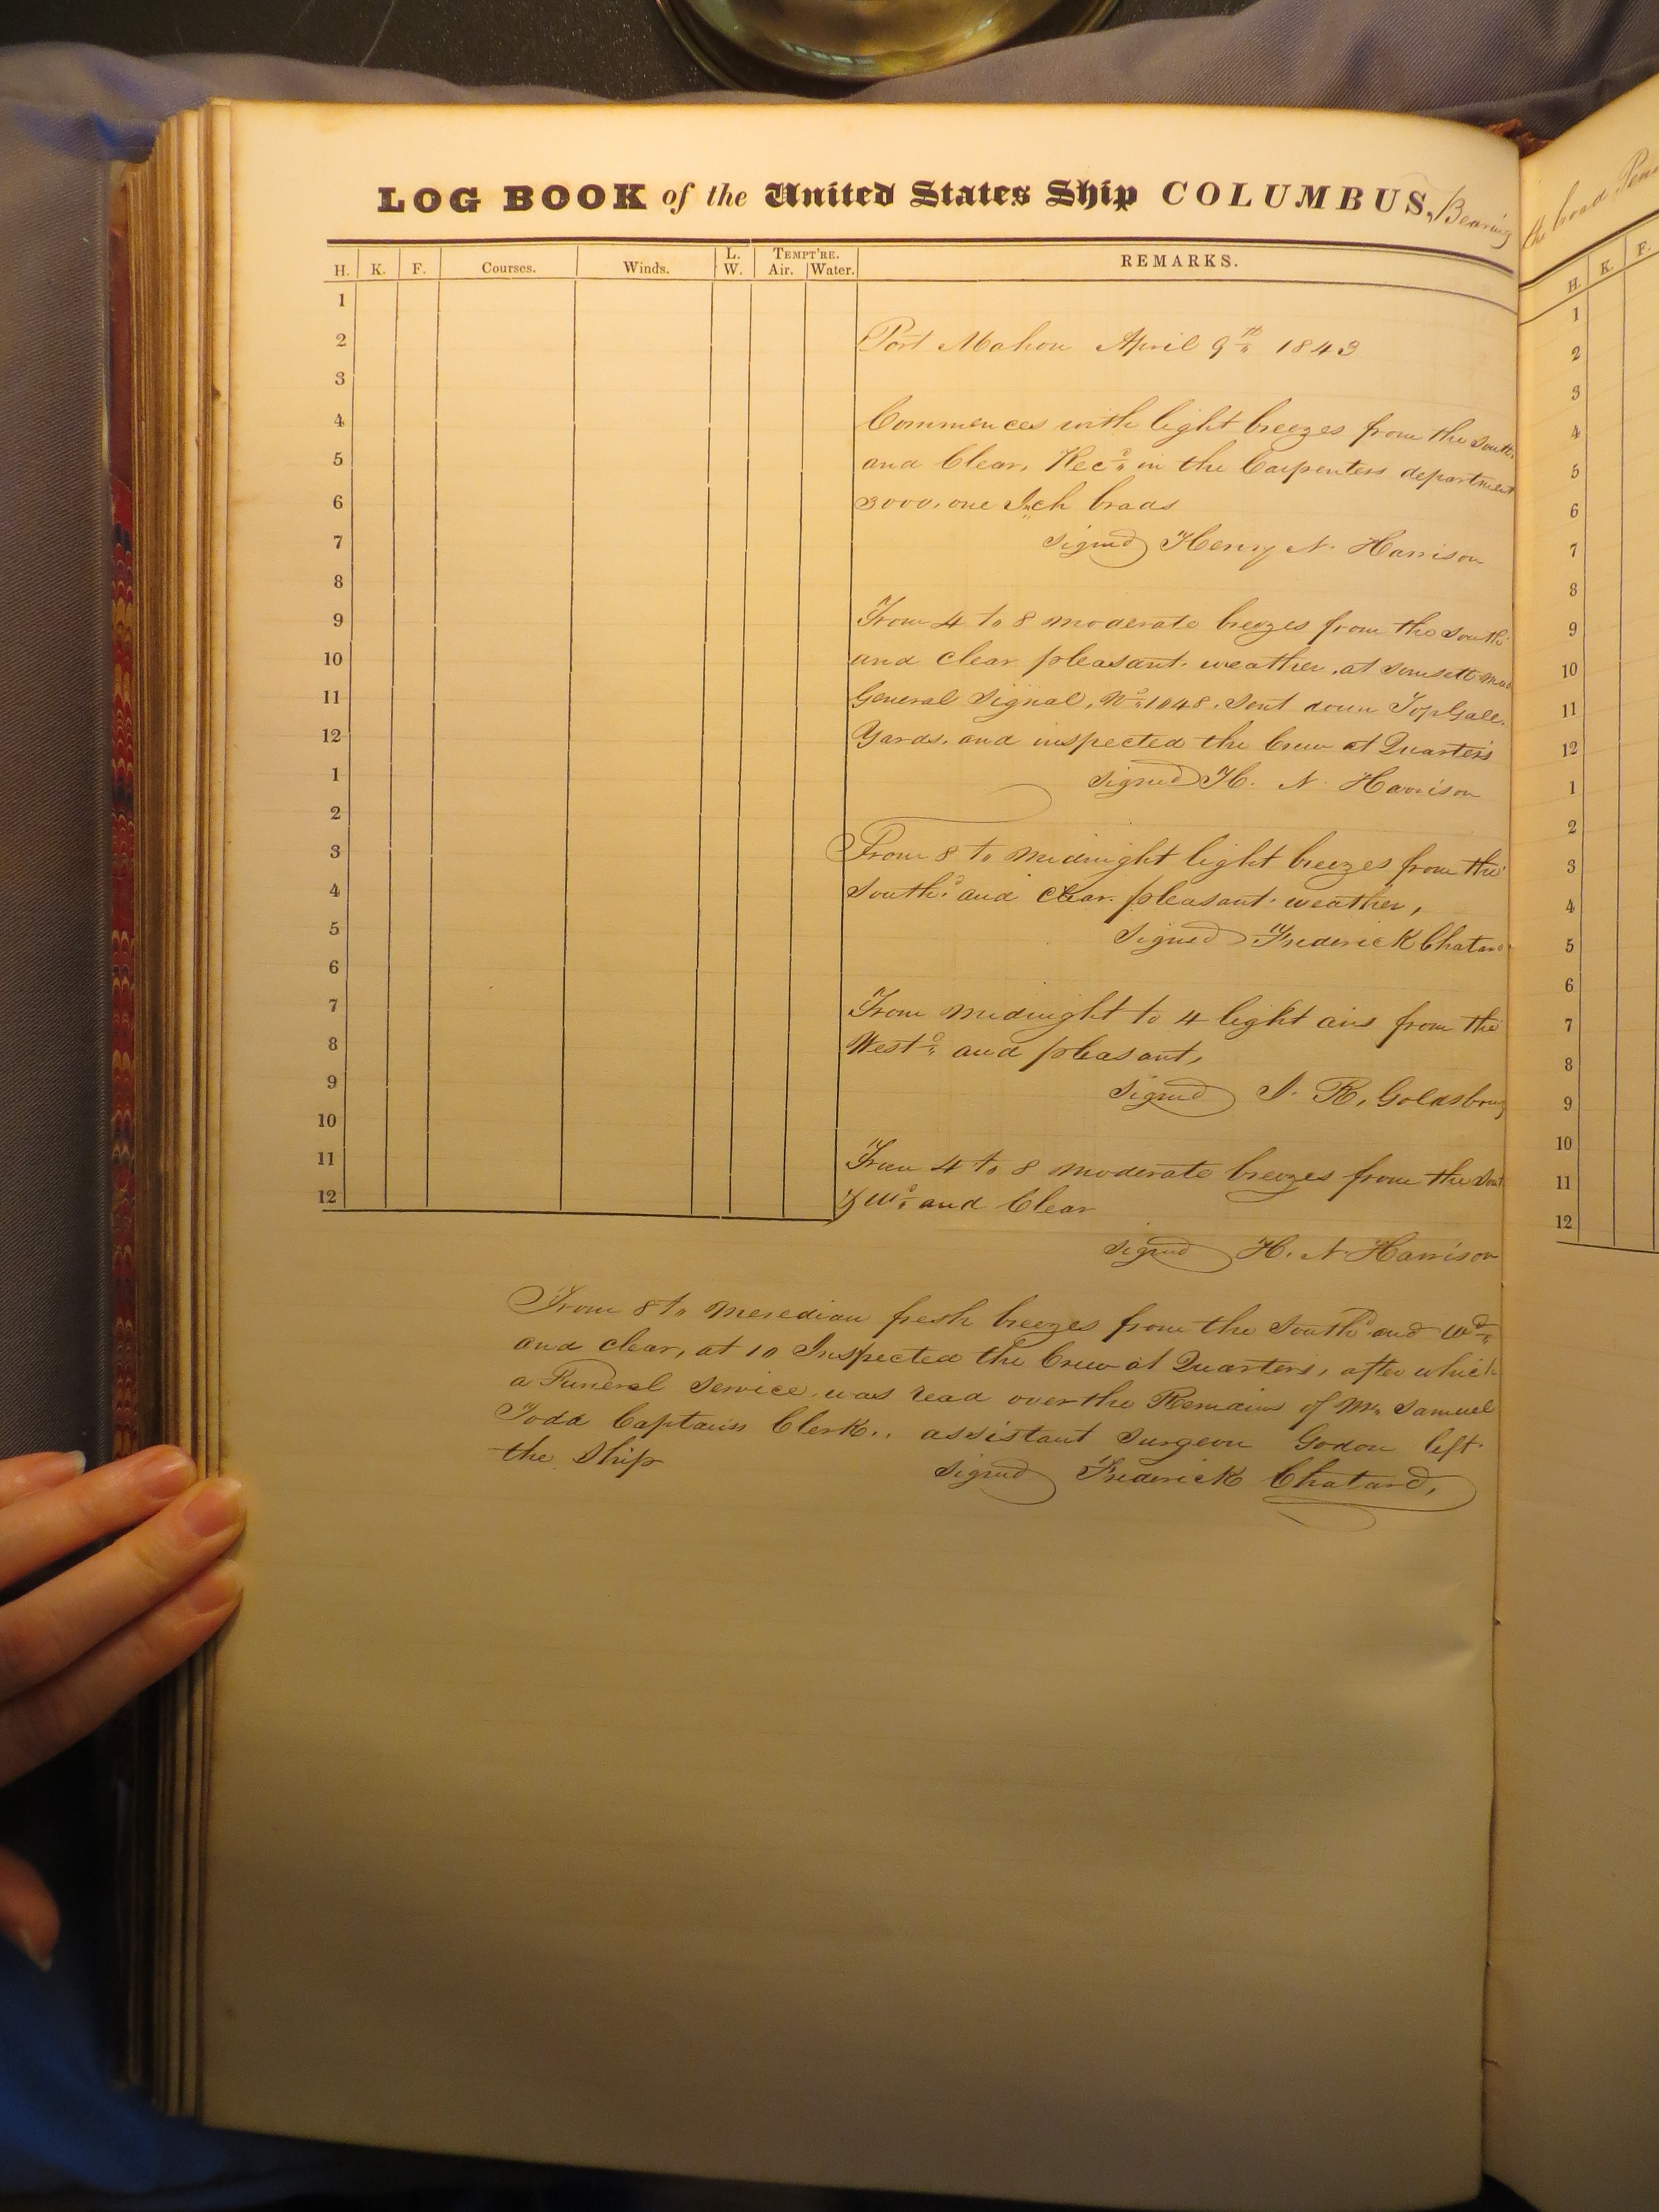 LOG BOOK of the United States Ship COLUMBUS, Bearing
H. K. F. Courses. Winds. L. W. TEMPT'RE. Air. Water. REMARKS.
1
2 Port Mahon April 9th 1843
3
4 Commences with light breezes from the South
5 and Clear, Recd in the Carpenters department
6 3000. one Inch brads
7 signed Henry N. Harrison
8
9 From 4 to 8 moderate breezes from the South
10 and clear pleasant weather, at sunsett mad
11 General Signal, No 1048. Sent down TopGall.
12 Yards, and inspected the Crew at Quarters
1 signed H. N. Harrison
2
3 From 8 to midnight light breezes from the
4 Southd and clear pleasant weather,
5 signed Frederick Chatard
6
7 From midnight to 4 light airs from the
8 Westd and pleasant,
9 signed J. R. Goldsboroug
10
11 From 4 to 8 moderate breezes from the Sout
12 & Wd and Clear
signed H. N. Harrison
From 8 to Meredian fresh breezes from the Southd and Wd
and clear, at 10 Inspected the Crew at Quarters, after which
a Funeral Service was read over the Remains of Mr Samuel
Todd Captains Clerk., assistant surgeon Godon left
the Ship signed Frederick Chatard,
the broad Penn
H. K. F.
1
2
3
4
5
6
7
8
9
10
11
12
1
2
3
4
5
6
7
8
9
10
11
12